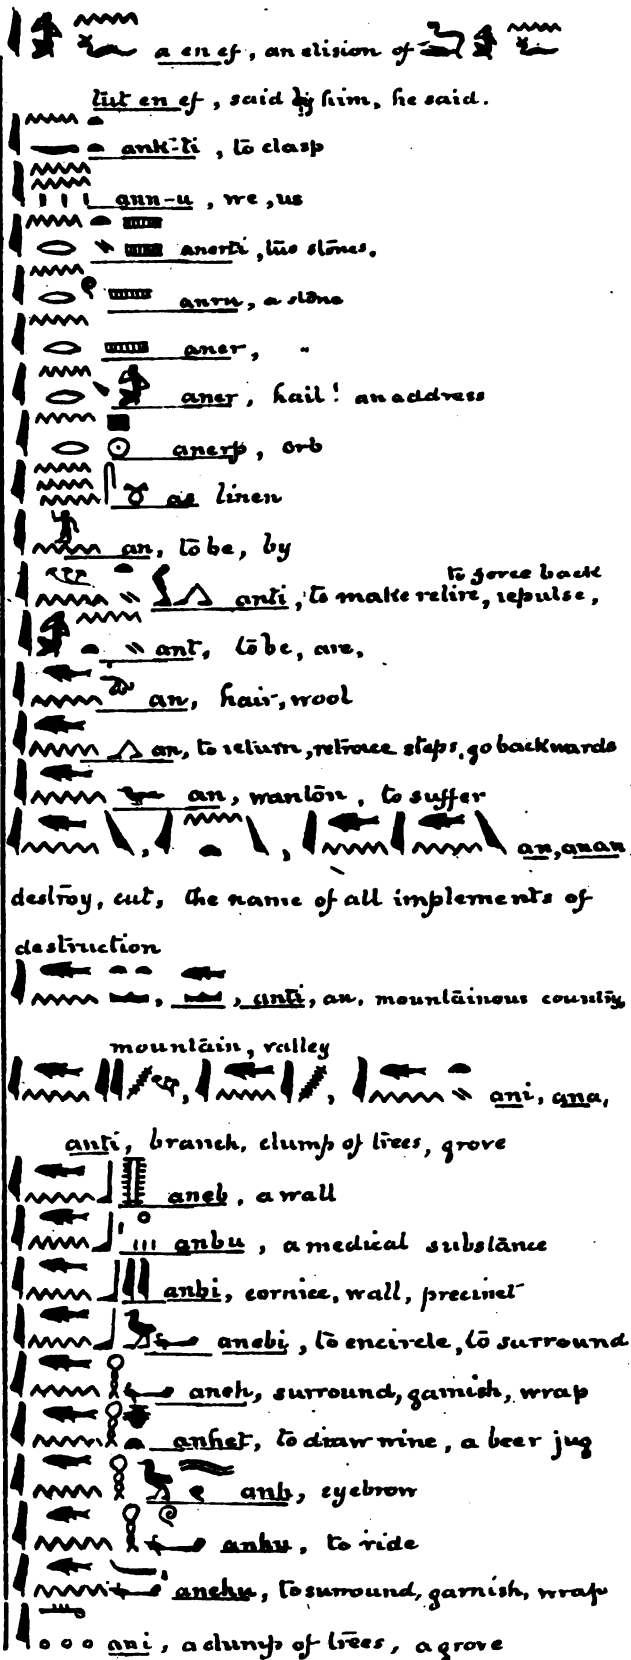 a en ef, an elision of
tut en ef, said by him, he said.
ank-ti, to clasp
ann-u, we, us
anerti, two stones.
anru, a stone
aner, "
aner, hail! an address
anerp, orb
as linen
an, to be, by
to force back
anti, to make retire, repulse,
ant, to be, are,
an, hair, wool
an, to return, retrace steps, go backwards
an, wanton, to suffer
an, anan
destroy, cut, the name of all implements of
destruction
anti, an, mountainous country,
mountain, valley
ani, ana,
anti, branch, clump of trees, grove
aneb, a wall
anbu, a medical substance
anbi, cornice, wall, precinct
anebi, to encircle, to surround
aneh, surround, garnish, wrap
anhet, to draw wine, a beer jug
anh, eyebrow
anhu, to ride
anehu, to surround, garnish, wrap
ani, a clump of trees, a grove